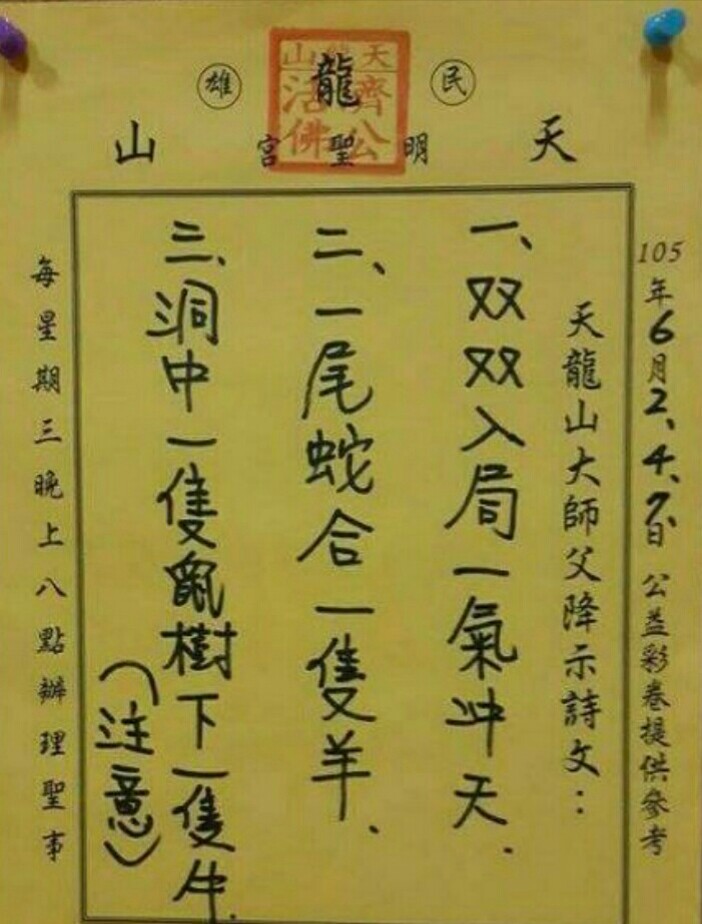 天龍山
民雄
明聖宮
天龍山
濟公
活佛
105年6月2、4、7日 公益彩卷提供參考
天龍山大師父降示詩文：
一、双双入局一氣冲天．
二、一尾蛇合一隻羊．
三、洞中一隻鼠樹下一隻牛．
（注意）
每星期三晚上八點辦理聖事